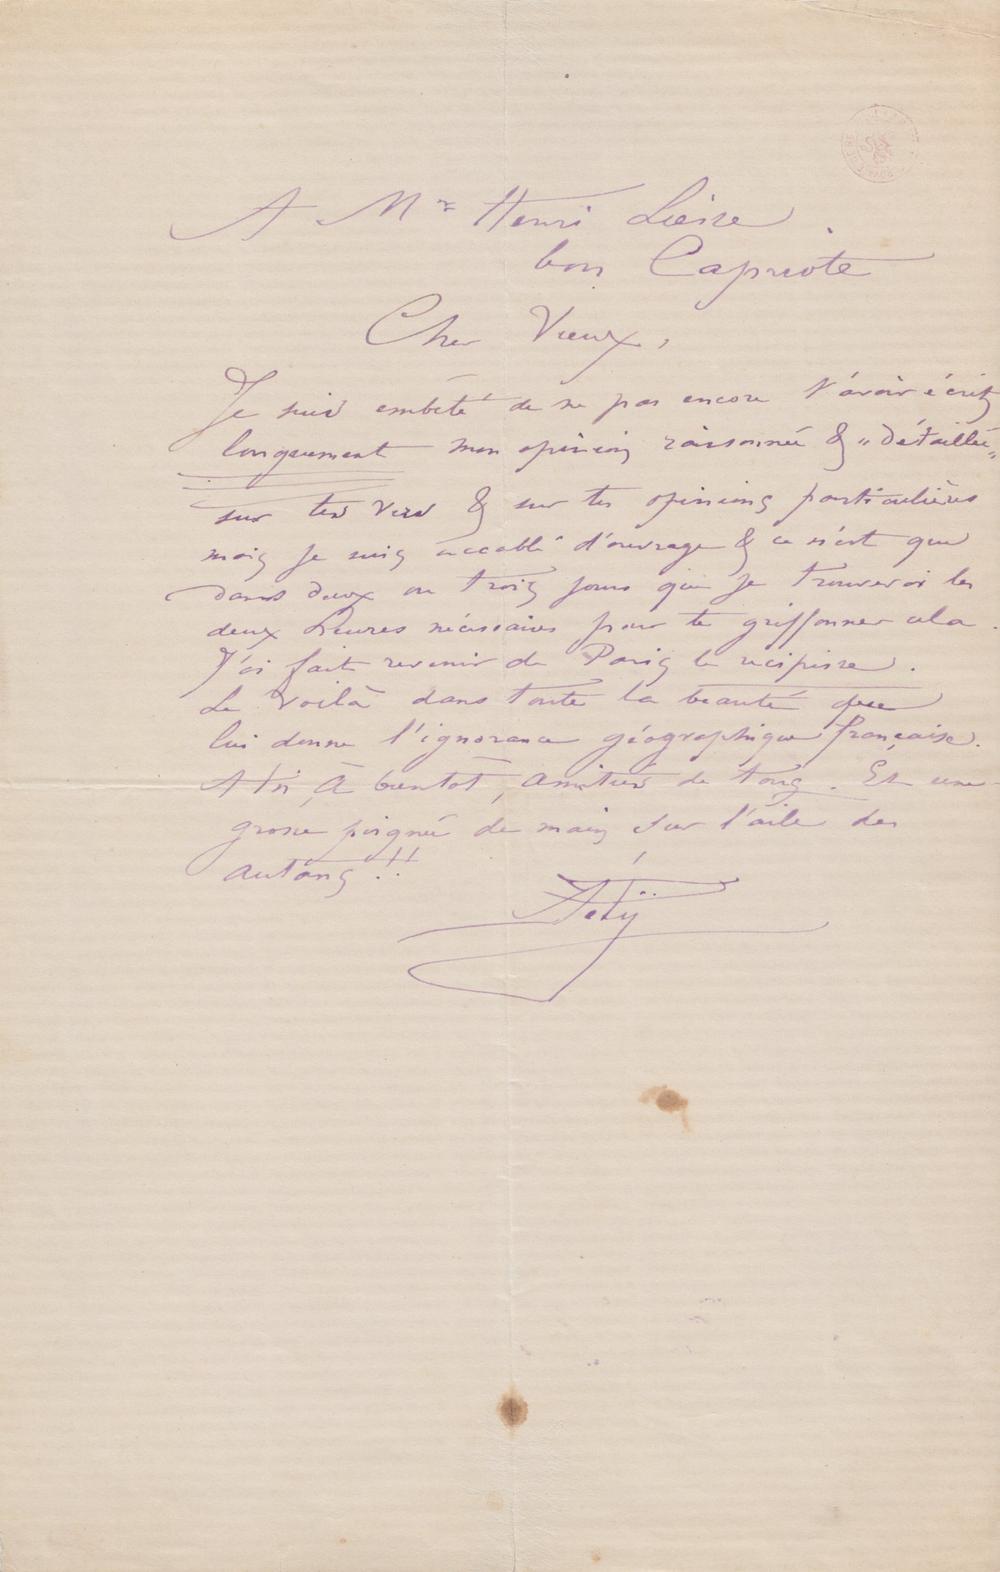 A Mr Henri Liesse
bon Capriote
Cher Vieux,
Je suis embêté de ne pas encore t'avoir écrit
longuement mon opinion raisonnée & "détaillée"
sur tes vers & sur tes opinions particulières
mais je suis accablé d'ouvrage & ce n'est que
dans deux ou trois jours que je trouverai les
deux heures nécessaires pour te griffonner cela.
J'ai fait revenir de Paris le récipissé.
Le voilà dans toute la beauté que
lui donne l'ignorance géographique française.
A toi, à bientôt, amitiés de tous. Et une
grosse poignée de main sur l'aile des
autans!!